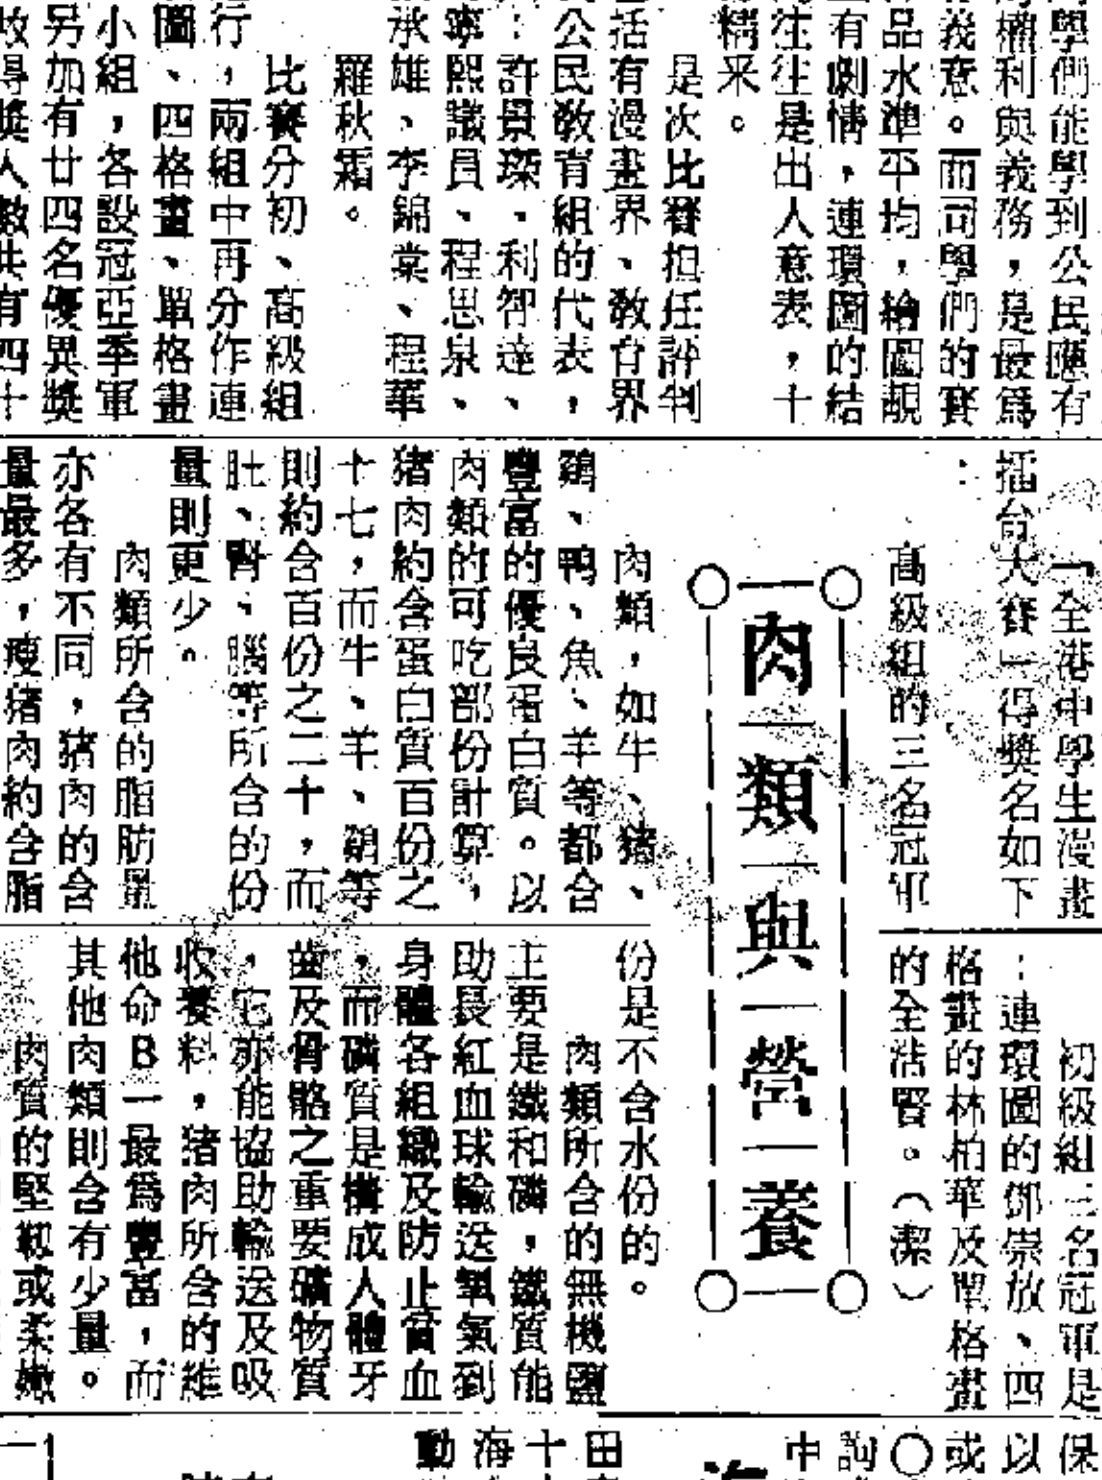 學們能學到公民應有
權利與義務，是最爲
義意。而同學們的賽
品水準平均，繪圖靚
有劇情，連環圖的結
往往是出人意表，十
精采。
是次比賽担任評判
括有漫畫界、敎育界
公民敎育組的代表，
：許景琛、利智達、
寧熙議員、程思泉、
承雄、李錦棠、程華
羅秋霜。
比賽分初、高級組
行，兩組中再分作連
圖、四格畫、單格畫
小組，各設冠亞季軍
另加有廿四名優異獎
得獎人數共有四十
「全港中學生漫畫
擂台大賽」得獎名如下
：
高級組的三名冠軍
肉類與營養
肉類，如牛、猪、
鷄、鴨、魚、羊等都含
豐富的優良蛋白質。以
肉類的可吃部份計算，
猪肉約含蛋白質百份之
十七，而牛、羊、鷄等
則約含百份之二十，而
肚、腎、腦等所含的份
量則更少。
肉類所含的脂肪量
亦各有不同，猪肉的含
量最多，瘦猪肉約含脂
初級組三名冠軍是
：連環圖的鄧崇放、四
格畫的林柏華及單格畫
的全浩賢。（潔）
份是不含水份的。
肉類所含的無機鹽
主要是鐵和磷，鐵質能
助長紅血球輸送氧氣到
身體各組織及防止貧血
，而磷質是構成人體牙
齒及骨骼之重要礦物質
，它亦能協助輸送及吸
收養料，猪肉所含的維
他命B一最爲豐富，而
其他肉類則含有少量。
肉質的堅靱或柔嫩
保
以
或
○
詢
中
田
十
海
動